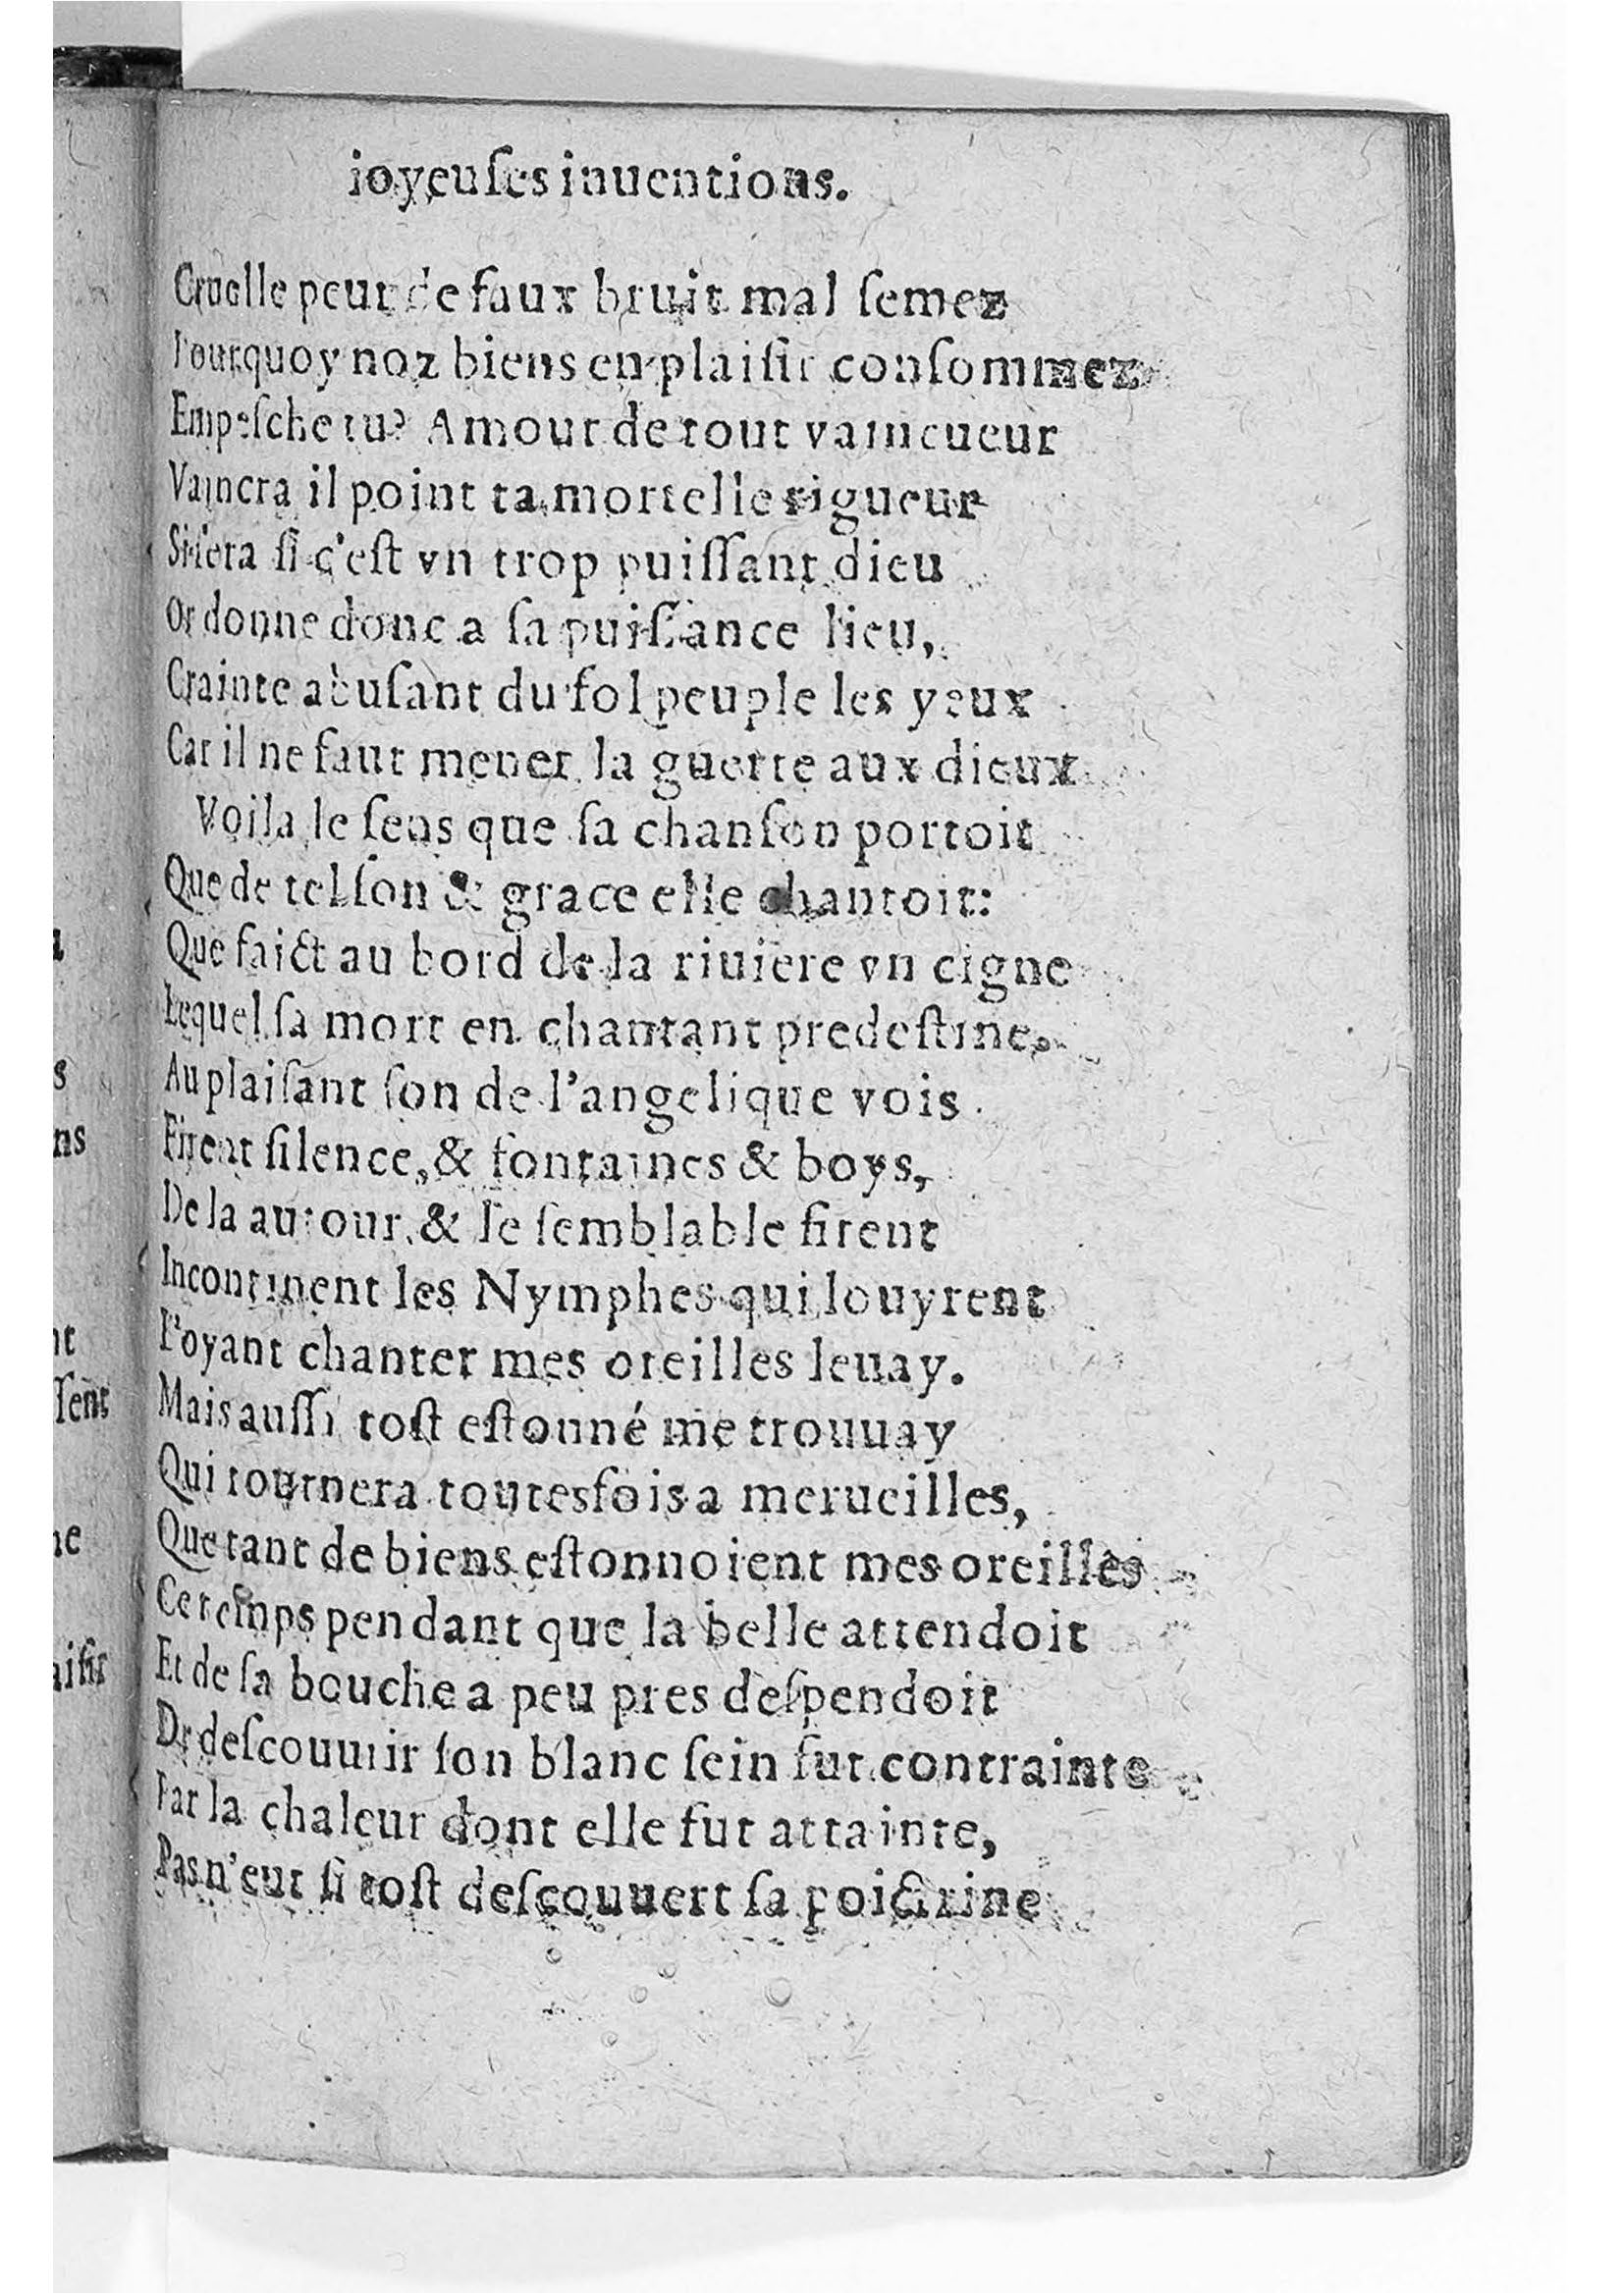 ioyeuſes inuentions.
Cruelle peur de faux bruit mal ſemez
Pourquoy noz biens en plaiſir conſommez
Empeſche tu? Amour de tout vaincueur
Vaincra il point ta mortelle rigueur
Si fera ſi c'eſt vn trop puiſſant dieu
Or donne donc a ſa puiſſance lieu,
Crainte abuſant du fol peuple les yeux
Car il ne faut mener la guerre aux dieux
Voila le ſens que ſa chanſon portoit
Que de tel ſon & grace elle chantoit:
Que faict au bord de la riuiere vn cigne
Lequel ſa mort en chantant predeſtine,
Au plaiſant ſon de l'angelique vois
Firent ſilence, & fontaines & boys,
De la autour, & le ſemblable firent
Incontinent les Nymphes qui louyrent
L'oyant chanter mes oreilles leuay.
Mais auſſi toſt eſtonné me trouuay
Qui tournera toutesfois a merueilles,
Que tant de biens eſtonnoient mes oreilles
Ce temps pendant que la belle attendoit
Et de ſa bouche a peu pres deſpendoit
De deſcouurir ſon blanc ſein fut contrainte
Par la chaleur dont elle fut attainte,
Pas n'eut ſi toſt deſcouuert ſa poictrine
s
ns
nt
ſent
ne
aiſir